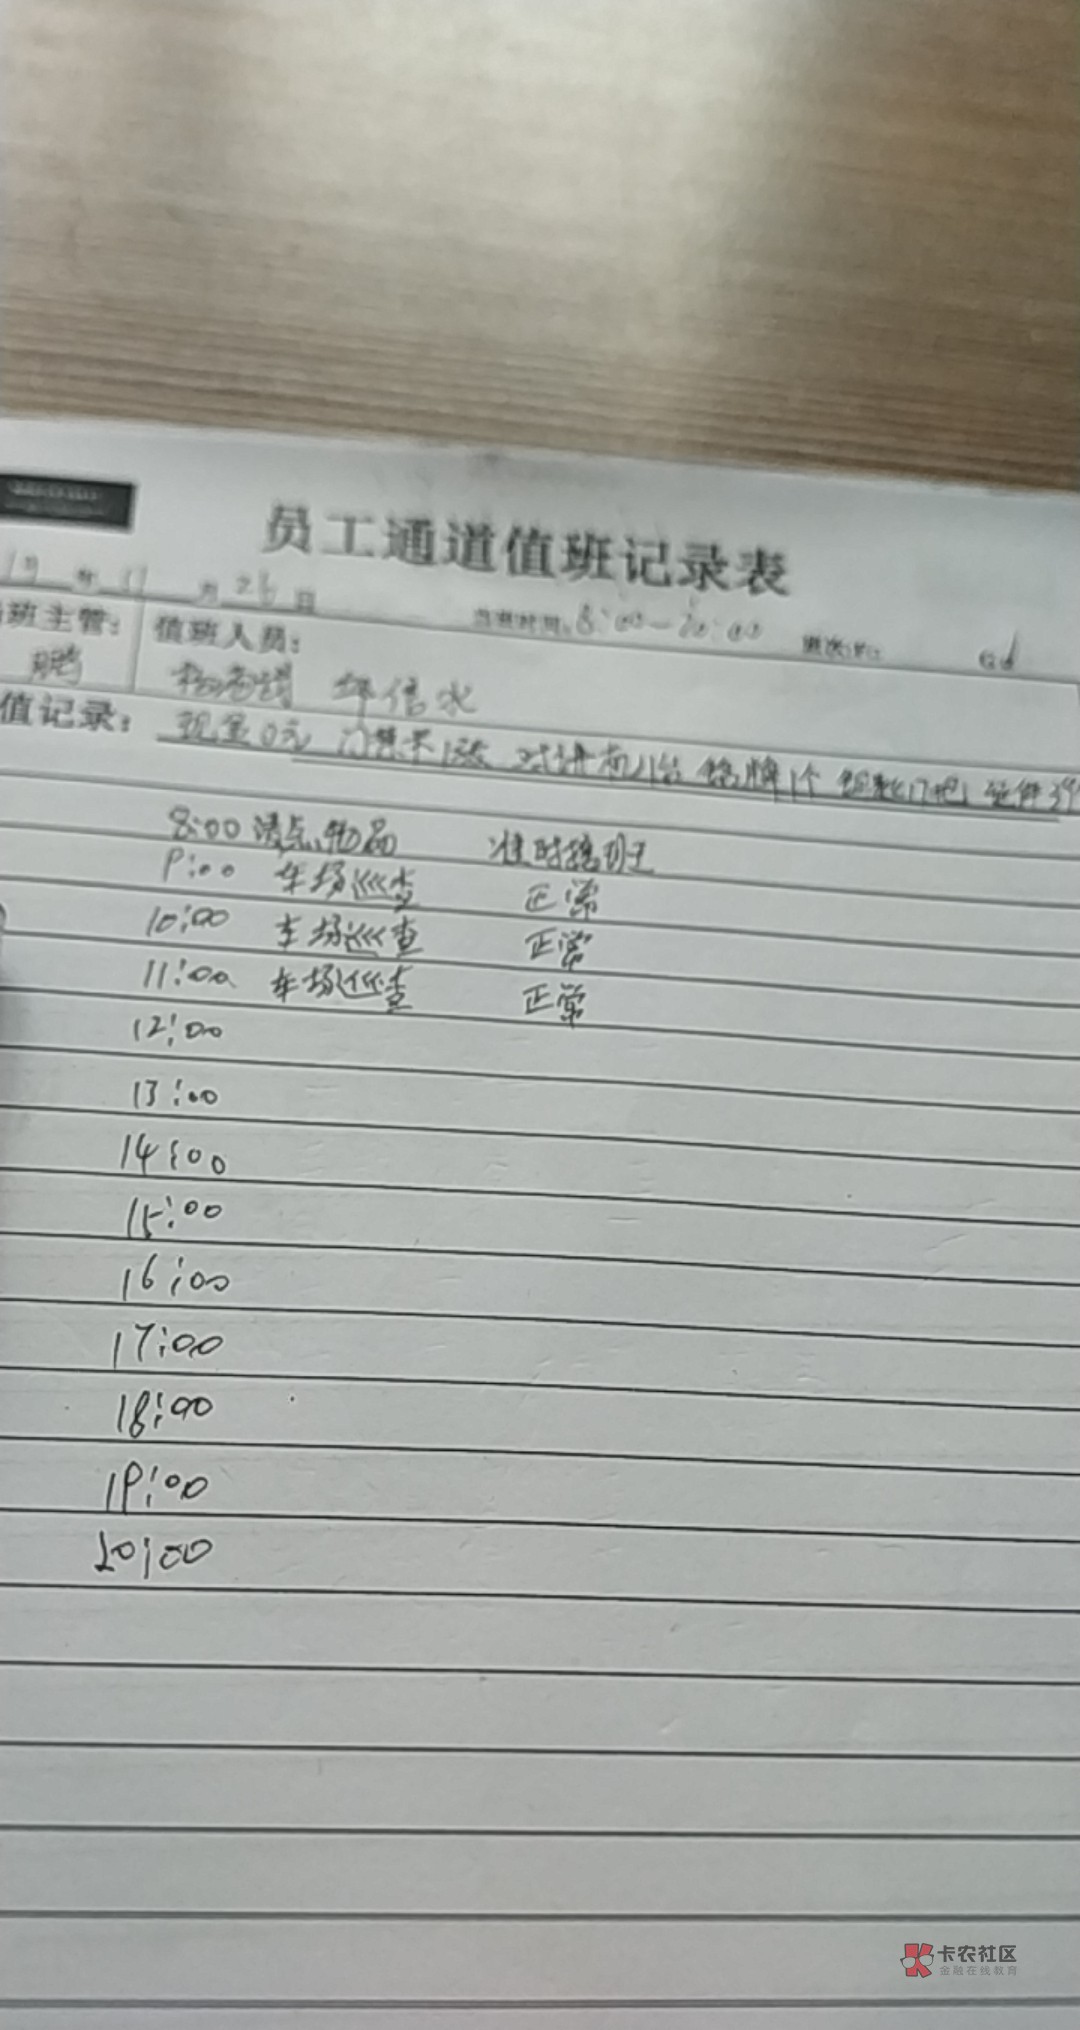 员工通道值班记录表
年 月 26 日 8:00-20:00
班主管: 值班人员:
鹏
值记录: 现金0元 门禁卡1张 对讲机1台 1个 17把 证件
8:00 清点物品 准时接班
9:00 车场巡查 正常
10:00 车场巡查 正常
11:00 车场巡查 正常
12:00
13:00
14:00
15:00
16:00
17:00
18:00
19:00
20:00
卡农社区
金融在线教育